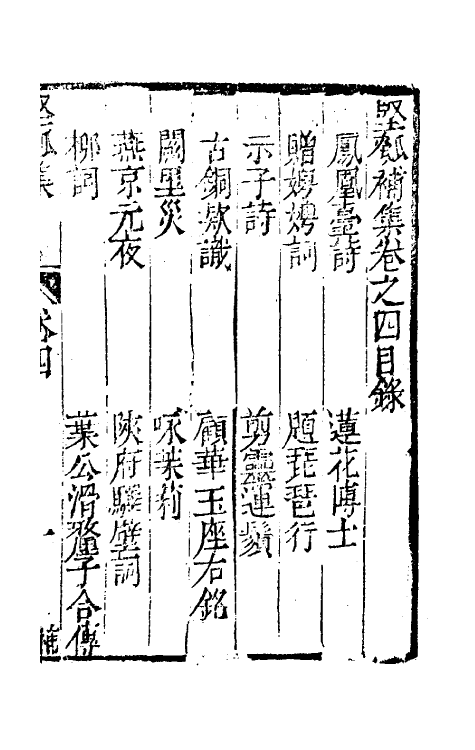 堅瓠補集卷之四目錄
鳳凰臺詩 蓮花博士
贈娉娉詞 題琵琶行
示子詩 剪靈運鬚
古銅款識 顧華玉座右銘
闕里災 咏茉莉
燕京元夜 陝府驛壁詞
柳詞 葉公滑釐子合傳
堅瓠集 卷四 一